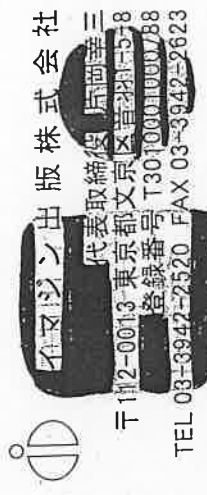 イマジン出版株式会社
代表取締役 片岡幸三
〒112-0013 東京都文京区音羽1-5-8
登録番号 T3010001000788
TEL 03-3942-2520 FAX 03-3942-2623